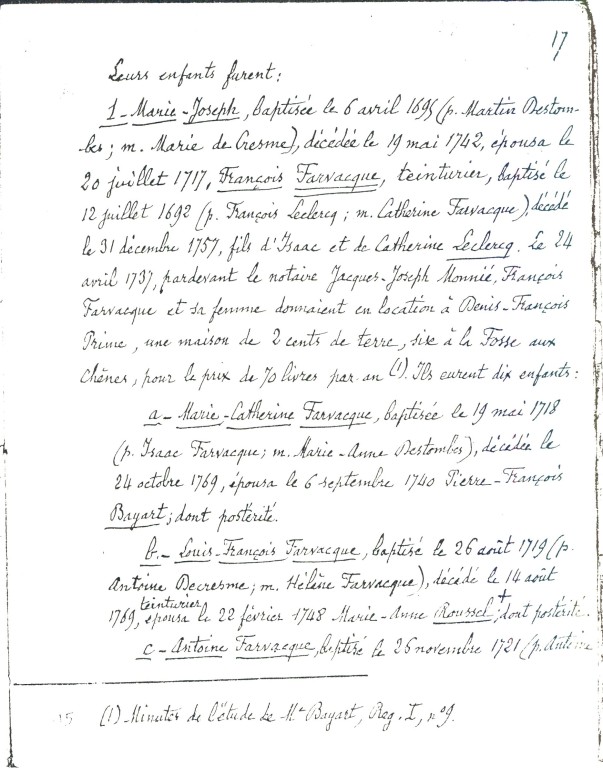 17
Leurs enfants furent :
1 - Marie - Joseph, baptisée le 6 avril 1695 (p. Martin Destom-
bes ; m. Marie de Cresme), décédée le 19 mai 1742, épousa le
20 juillet 1717, François Farvacque, teinturier, baptisé le
12 juillet 1692 (p. François Leclercq ; m. Catherine Farvacque), décédé
le 31 décembre 1757, fils d'Isaac et de Catherine Leclercq. Le 24
avril 1737, pardevant le notaire Jacques-Joseph Monnié, François
Farvacque et sa femme donnaient en location à Denis-François
Prime, une maison de 2 cents de terre, sise à la Fosse aux
Chênes, pour le prix de 70 livres par an (1). Ils eurent dix enfants :
a - Marie-Catherine Farvacque, baptisée le 19 mai 1718
(p. Isaac Farvacque ; m. Marie-Anne Destombes), décédée le
24 octobre 1769, épousa le 6 septembre 1740 Pierre-François
Bayart ; dont postérité.
b. - Louis-François Farvacque, baptisé le 26 août 1719 (p.
Antoine Decresme ; m. Hélène Farvacque), décédé le 14 août
1769, teinturier, épousa le 22 février 1748 Marie-Anne Roussel + ; dont postérité.
c - Antoine Farvacque, baptisé le 26 novembre 1721 (p. Antoine
(1) Minutes de l'étude de Me Bayart, Reg. I, n° 9.